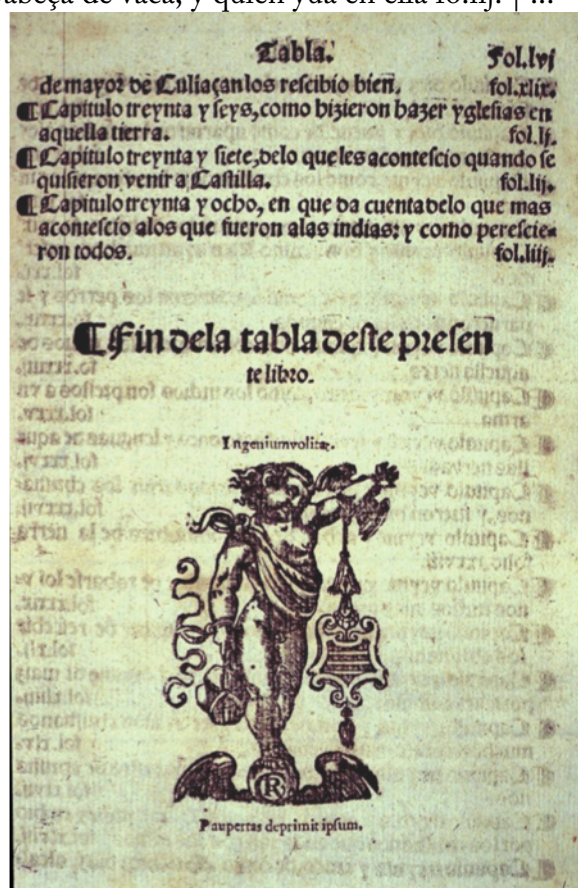 abeça de vaca, y quien yua en ella fo.iij. | ...
Tabla.
Fol.lvj
de mayor de Culiaçan los rescibio bien. fol.xlix.
¶ Capitulo treynta y seys, como hizieron hazer yglesias en
aquella tierra. fol.lj.
¶ Capitulo treynta y siete, delo que les acontescio quando se
quisieron venir a Castilla. fol.lij.
¶ Capitulo treynta y ocho, en que da cuenta delo que mas
acontescio alos que fueron alas indias: y como perescie-
ron todos. fol.liij.
¶ Fin dela tabla deste presen
te libro.
Ingenium volitat.
R
Paupertas deprimit ipsum.